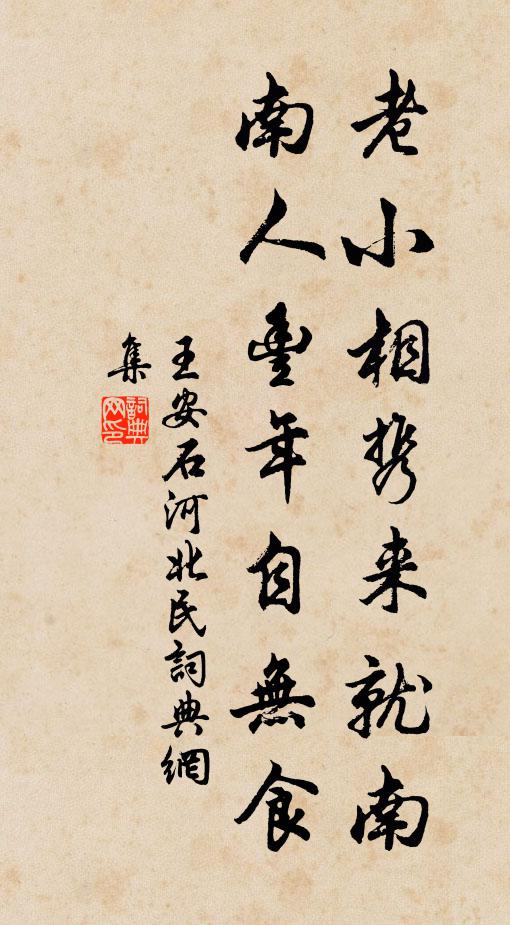 老小相携来就南
南人豐年自無食
王安石河北民詞典網
集
詞典網印